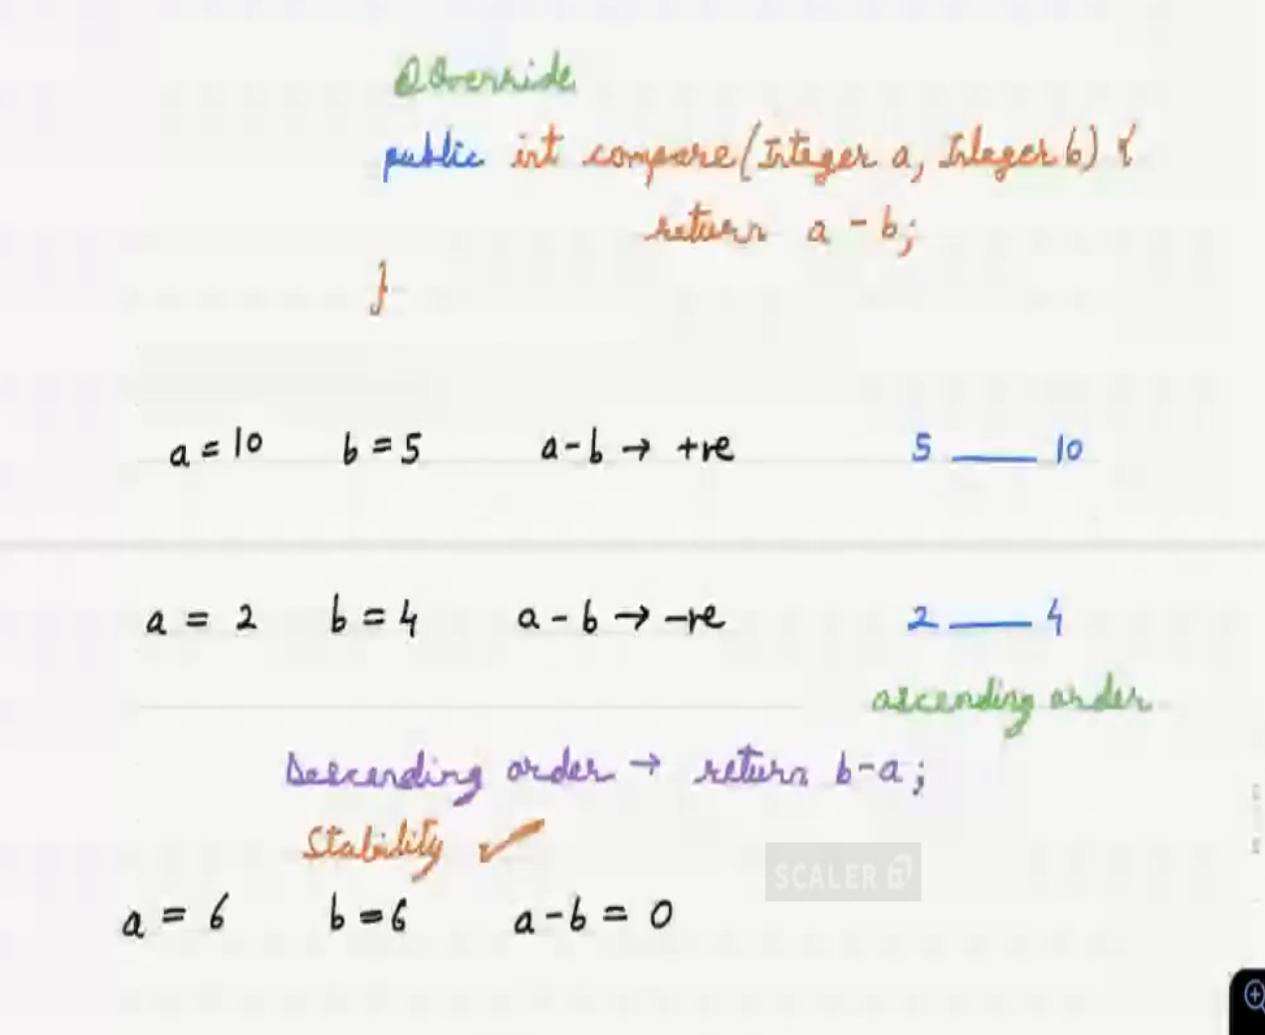 @Override
public int compare(Integer a, Integer b) {
return a - b;
}
a = 10 b = 5 a - b → +ve 5 __ 10
a = 2 b = 4 a - b → -ve 2 __ 4
ascending order
Descending order → return b-a;
Stability ✓
SCALER
a = 6 b = 6 a - b = 0